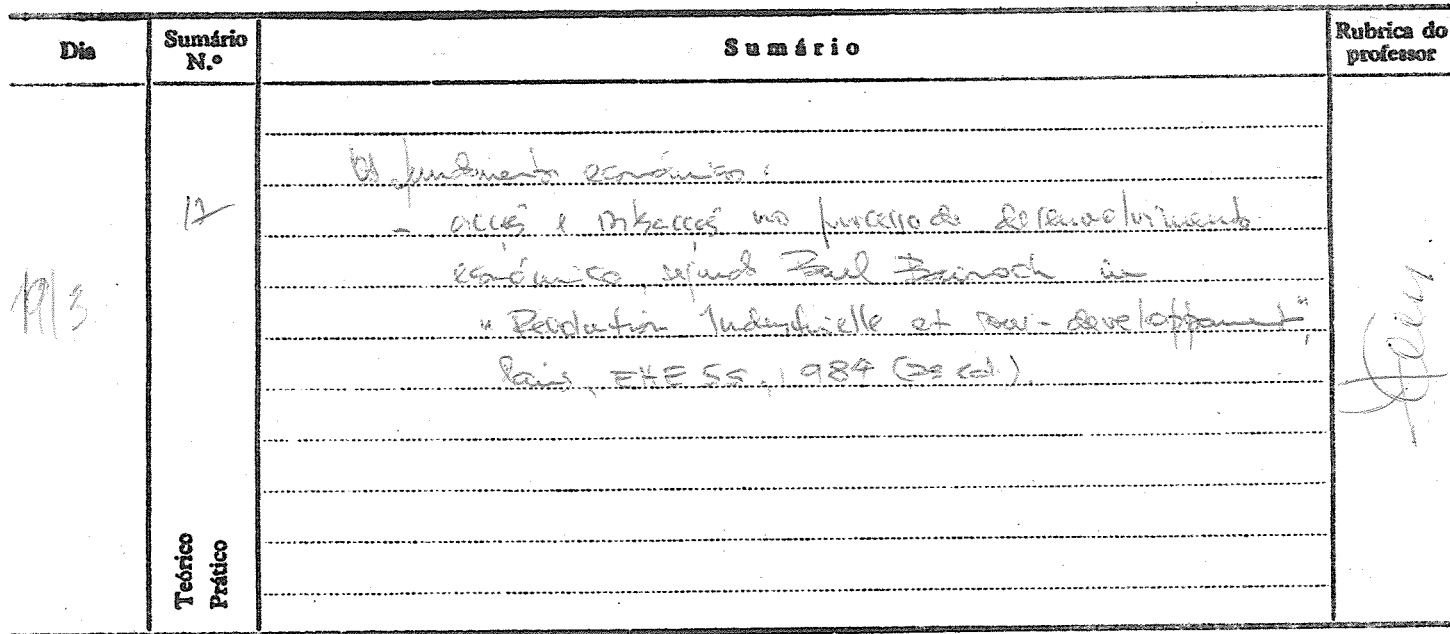 Dia
Sumário N.º
Sumário
Rubrica do professor
19/3
17
Os fundamentos económicos:
- acções e interacções no processo de desenvolvimento
económico, segundo Paul Bairoch in
"Revolution Industrielle et sous-developpement",
Paris, EHESS, 1984 (
Teórico
Prático